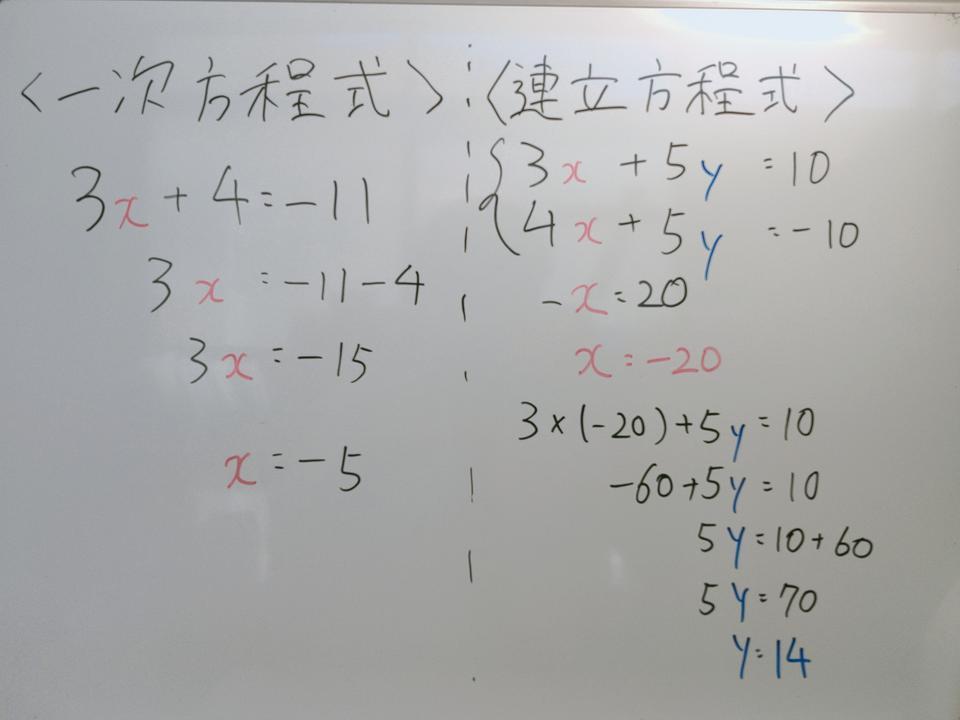 〈一次方程式〉
3x + 4 = -11
3x = -11 - 4
3x = -15
x = -5
〈連立方程式〉
3x + 5y = 10
4x + 5y = -10
-x = 20
x = -20
3×(-20)+5y = 10
-60+5y = 10
5y = 10+60
5y = 70
y = 14